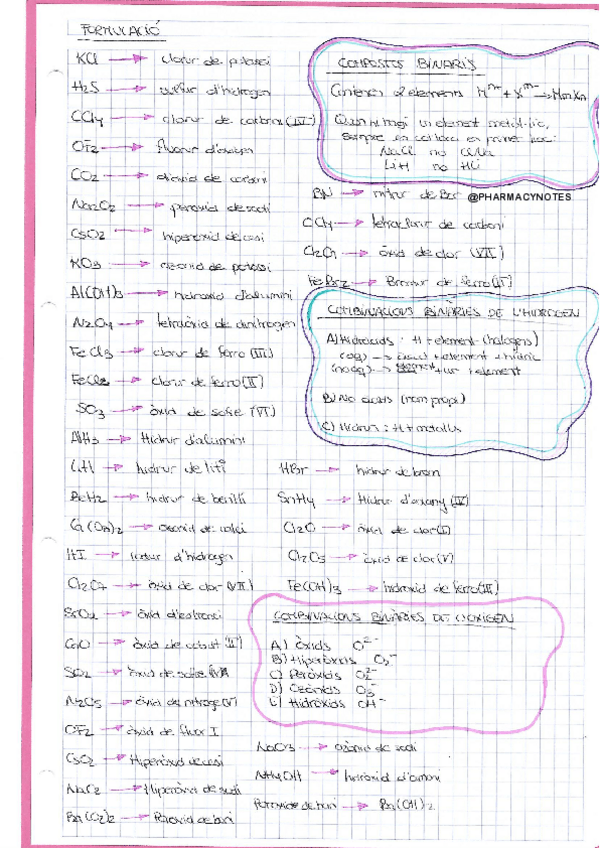 FORMULACIÓ
KCl → clorur de potassi
H2S → sulfur d'hidrogen
CCl4 → clorur de carboni (IV)
OF2 → fluorur d'oxigen
CO2 → diòxid de carboni
Na2O2 → peròxid de sodi
CsO2 → hiperòxid de cesi
KO3 → ozonid de potassi
Al(OH)3 → hidròxid d'alumini
N2O4 → tetraòxid de dinitrogen
FeCl3 → clorur de ferro (III)
FeCl2 → clorur de ferro (II)
SO3 → òxid de sofre (VI)
AlH3 → Hidrur d'alumini
LiH → hidrur de liti
BeH2 → hidrur de beril·li
Ca(O3)2 → ozonid de calci
HI → iodur d'hidrogen
Cl2O7 → òxid de clor (VII)
SrO2 → òxid d'estronci
CoO → òxid de cobalt (II)
SO2 → òxid de sofre (IV)
N2O5 → òxid de nitrogen (V)
OF2 → òxid de fluor I
CsO2 → Hiperòxid de cesi
NaO2 → Hiperòxid de sodi
Ba(O2)2 → Peròxid de bari
COMPOSTOS BINARIS
Contenen 2 elements
Quan hi hagi un element metàl·lic,
sempre es col·loca en primer lloc:
NaCl no ClNa
LiH no HLi
BN → nitrur de Bor
@PHARMACYNOTES
CCl4 → tetraclorur de carboni
Cl2O7 → òxid de clor (VII)
FeBr2 → Bromur de ferro (II)
COMBINACIONS BINÀRIES DE L'HIDROGEN
A) Hidràcids: H + element (halògens)
(aq) → àcid + element + hídric
(no aq) → element + ur + element
B) No àcids (nom propi)
C) Hidrurs: H + metalls
HBr → hidrur de brom
SnH4 → Hidrur d'estany (IV)
Cl2O → òxid de clor (I)
Cl2O5 → òxid de clor (V)
Fe(OH)3 → hidròxid de ferro (III)
COMBINACIONS BINÀRIES DE L'OXIGEN
A) Òxids O2-
B) Hiperòxids O2-
C) Peròxids O2 2-
D) Ozònids O3-
E) Hidròxids OH-
NaO3 → ozònid de sodi
NH4OH → hidròxid d'amoni
Peròxid de bari → Ba(OH)2